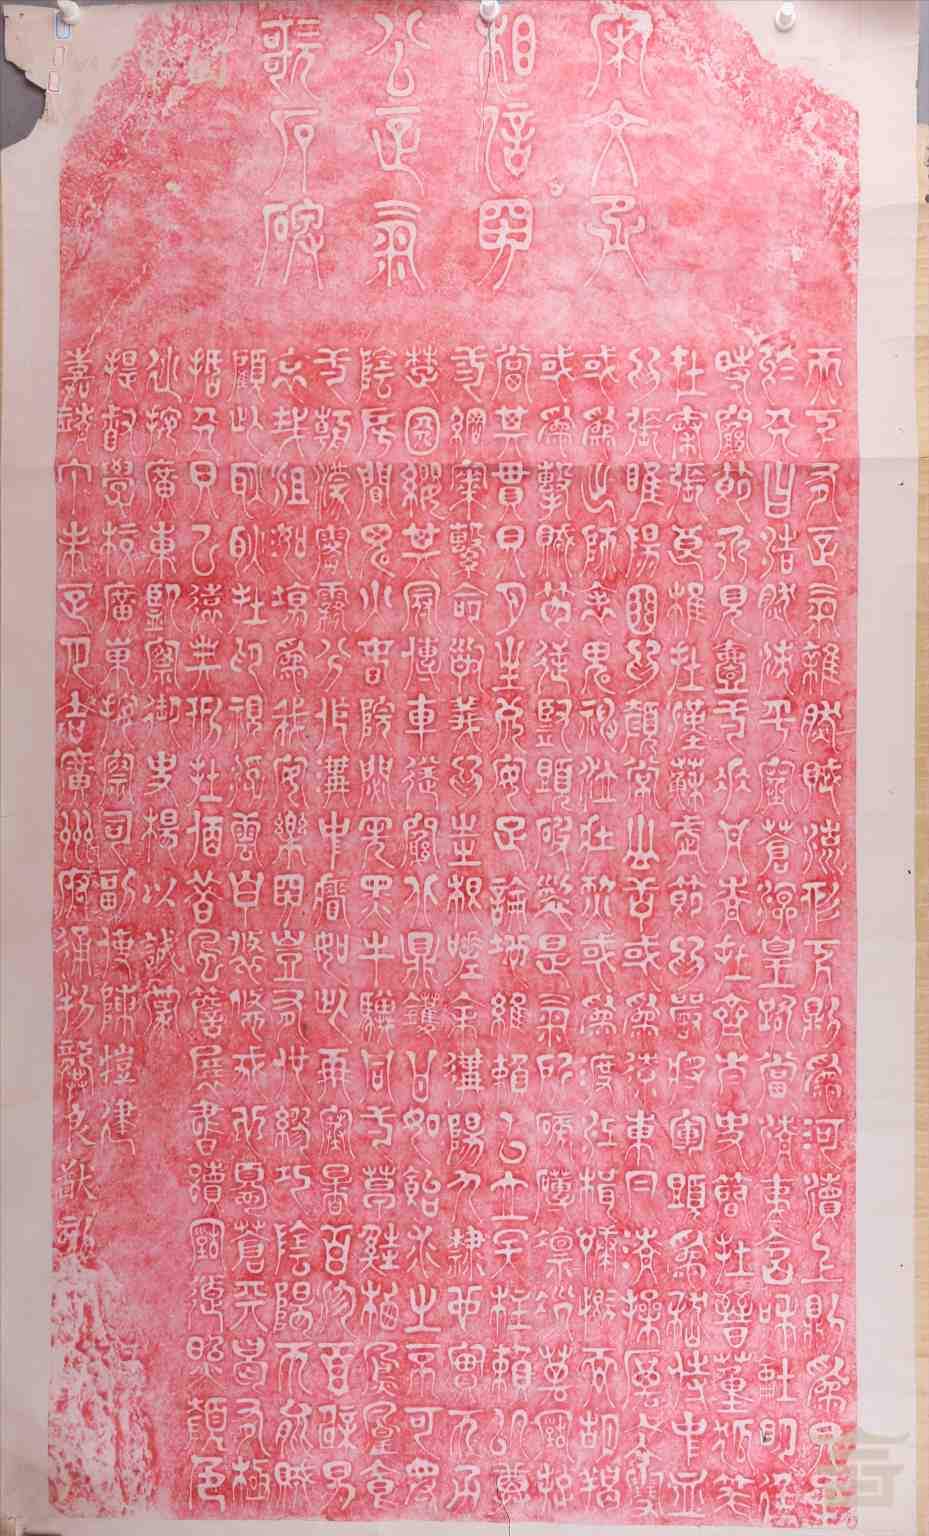 宋文丞
相信國
公正氣
歌石碑
天地有正氣雜然賦流形下則為河嶽上則為日星
於人曰浩然沛乎塞蒼冥皇路當清夷含和吐明庭
時窮節乃見一一垂丹青在齊太史簡在晉董狐筆
在秦張良椎在漢蘇武節為嚴將軍頭為嵇侍中血
為張睢陽齒為顏常山舌或為遼東帽清操厲冰雪
或為出師表鬼神泣壯烈或為渡江楫慷慨吞胡羯
或為擊賊笏逆豎頭破裂是氣所磅礴凜烈萬古存
當其貫日月生死安足論地維賴以立天柱賴以尊
三綱實繫命道義為之根嗟余遘陽九隸也實不力
楚囚纓其冠傳車送窮北鼎鑊甘如飴求之不可得
陰房闃鬼火春院閟天黑牛驥同一皂雞棲鳳凰食
一朝濛霧露分作溝中瘠如此再寒暑百沴自辟易
哀哉沮洳場為我安樂國豈有他繆巧陰陽不能賊
顧此耿耿在仰視浮雲白悠悠我心悲蒼天曷有極
哲人日已遠典刑在夙昔風簷展書讀古道照顏色
巡按廣東監察御史楊以誠篆
提督學校廣東按察司副使陳塏建
嘉靖丁未正月吉廣州府通判龔良猷刻